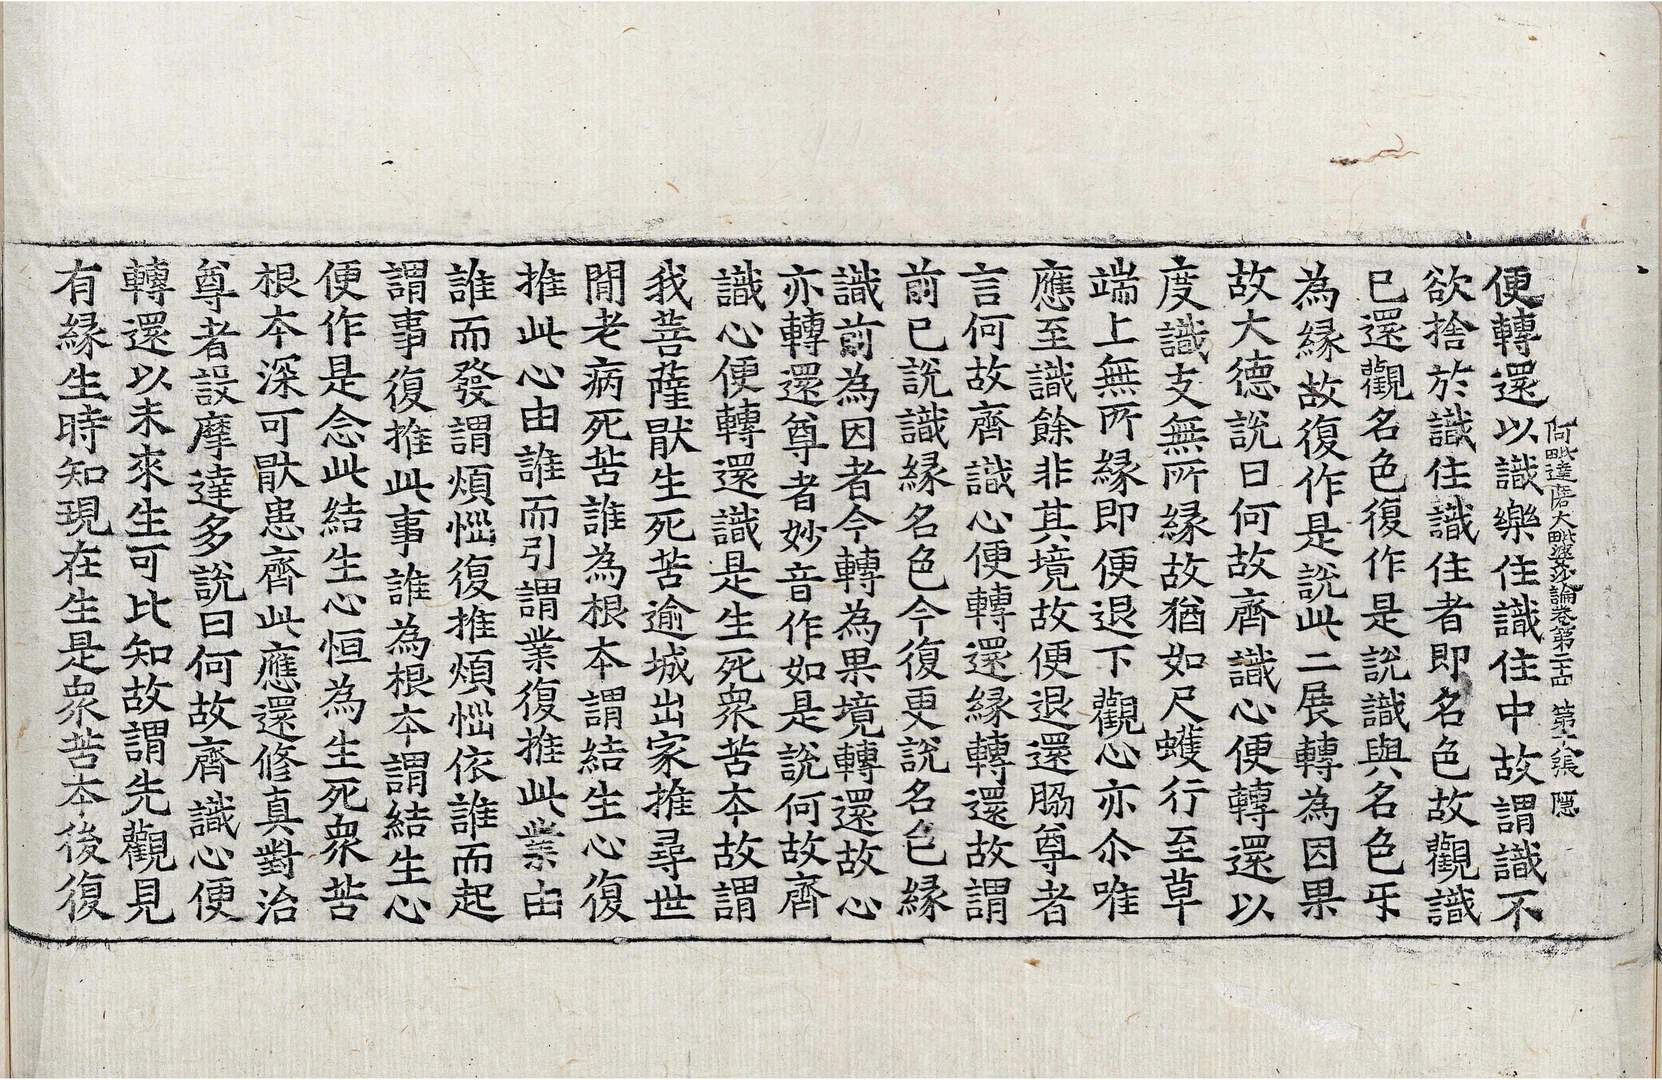 阿毗達磨大毗婆沙論卷第二十四　第六張　隱
便轉還以識樂住識住中故謂識不
欲捨於識住識住者即名色故觀識
已還觀名色復作是說識與名色㸦
為緣故復作是說此二展轉為因果
故大德說曰何故齊識心便轉還以
度識支無所緣故猶如尺蠖行至草
端上無所緣即便退下觀心亦尒唯
應至識餘非其境故便退還脇尊者
言何故齊識心便轉還緣轉還故謂
前已說識緣名色今復更說名色緣
識前為因者今轉為果境轉還故心
亦轉還尊者妙音作如是說何故齊
識心便轉還識是生死衆苦本故謂
我菩薩猒生死苦逾城出家推尋世
閒老病死苦誰為根本謂結生心復
推此心由誰而引謂業復推此業由
誰而發謂煩惱復推煩惱依誰而起
謂事復推此事誰為根本謂結生心
便作是念此結生心恒為生死衆苦
根本深可猒患齊此應還修真對治
尊者設摩達多說曰何故齊識心便
轉還以未來生可比知故謂先觀見
有緣生時知現在生是衆苦本後復